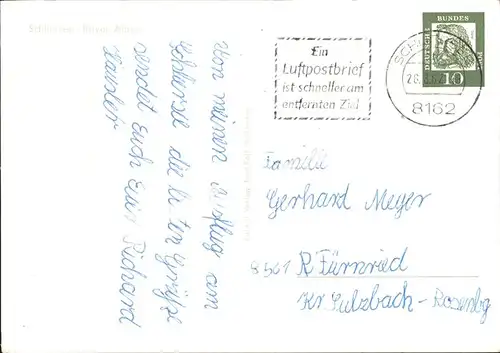 Von meinem Ausflug am
Schliersee die besten Grüße
sendet Euch Euer Richard
Lauder
Ein
Luftpostbrief
ist schneller am
entfernten Ziel
8162
DEUTSCHE
BUNDES
10
Familie
Gerhard Meyer
8561 R'Fürnried
Kr. Sulzbach-Rosenbg